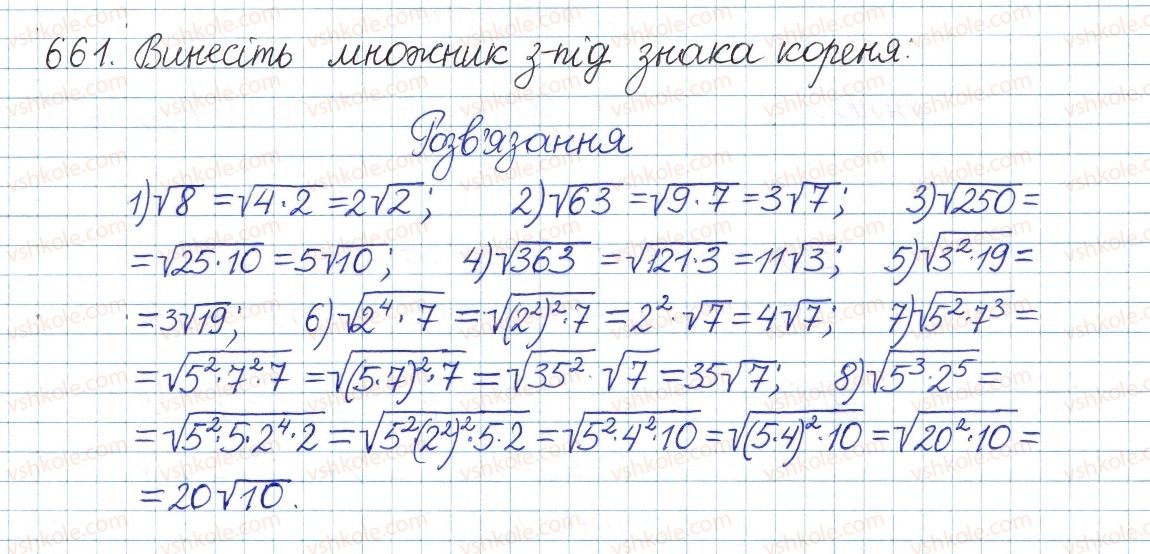 661. Винесіть множник з-під знака кореня:
Розв'язання
1) √8 = √4·2 = 2√2; 2) √63 = √9·7 = 3√7; 3) √250 =
= √25·10 = 5√10; 4) √363 = √121·3 = 11√3; 5) √3²·19 =
= 3√19; 6) √2⁴·7 = √(2²)²·7 = 2²·√7 = 4√7; 7) √5²·7³ =
= √5²·7²·7 = √(5·7)²·7 = √35²·√7 = 35√7; 8) √5³·2⁵ =
= √5²·5·2⁴·2 = √5²(2²)²·5·2 = √5²·4²·10 = √(5·4)²·10 = √20²·10 =
= 20√10.